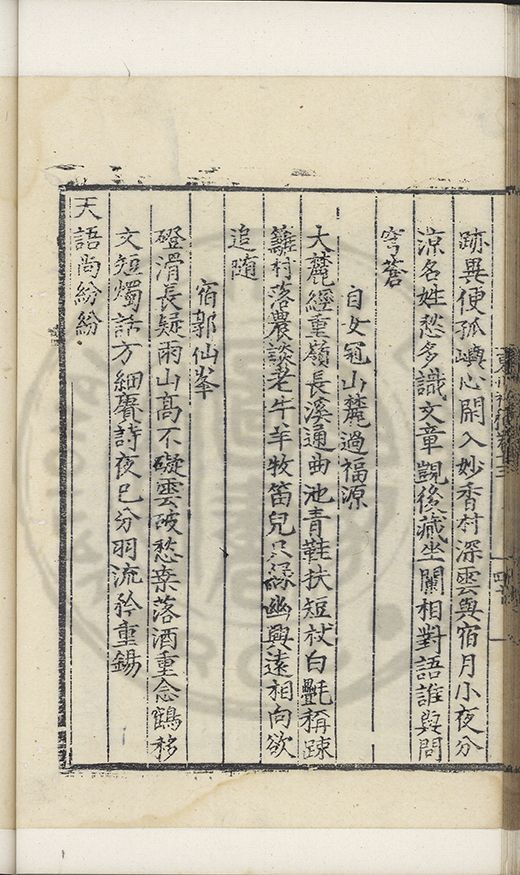 跡異使孤嶼心閑入妙香村深雲與宿月小夜分
涼名姓愁多識文章覬後藏坐闌相對語誰與問
穹蒼
自女冠山麓過福源
大麓經重嶺長溪通曲池青鞋扶短杖白㲲稱疎
籬村落農談老牛羊牧笛兒只緣幽興遠相向欲
追随
宿郭仙峯
磴滑長疑雨山高不礙雲破愁棊落酒重念鶴移
文短燭話方細賡詩夜已分羽流矜重錫
天語尚紛紛